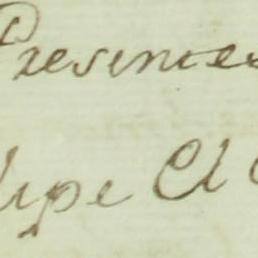 Presente
lipe Cl